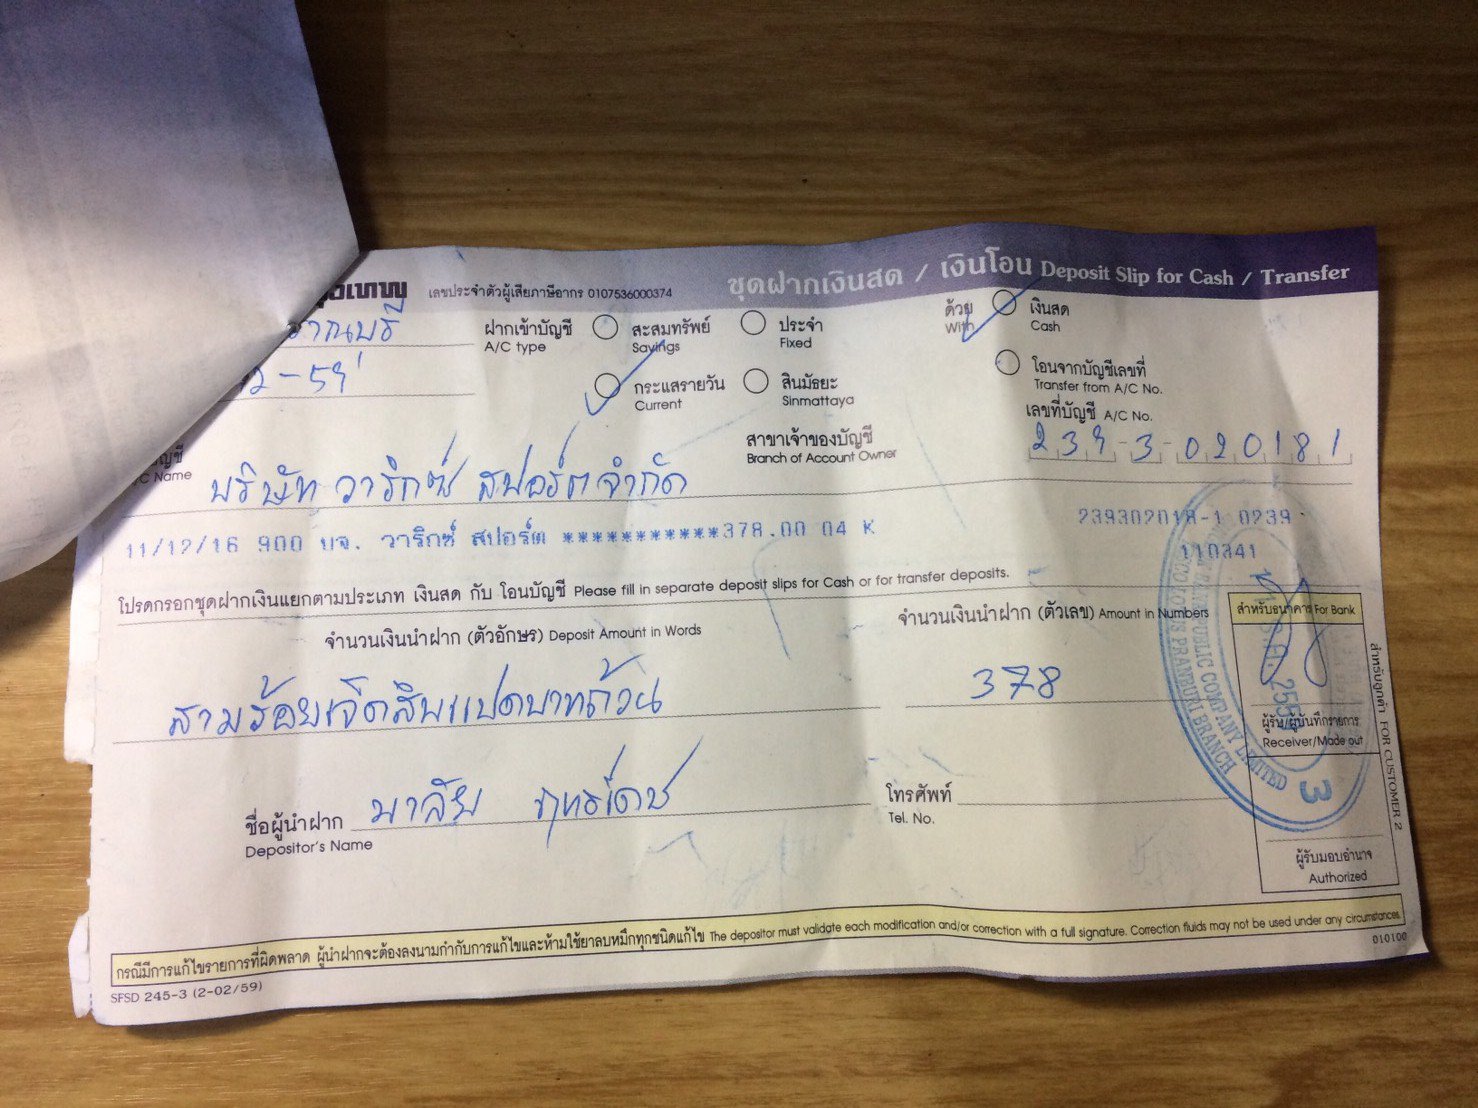 เลขประจำตัวผู้เสียภาษีอากร 0107536000374
ชุดฝากเงินสด / เงินโอน Deposit Slip for Cash / Transfer
ฝากเข้าบัญชี A/C type
สะสมทรัพย์ Savings
ประจำ Fixed
กระแสรายวัน Current
สินมัธยะ Sinmattaya
ด้วย With
เงินสด Cash
โอนจากบัญชีเลขที่ Transfer from A/C No.
เลขที่บัญชี A/C No.
239-3-020181
สาขาเจ้าของบัญชี
Branch of Account Owner
Name
บริษัท วาริกซ์ สปอร์ต จำกัด
11/12/16 900 บจ. วาริกซ์ สปอร์ต ***********378.00 04 K
239302018-1 0239
110341
โปรดกรอกชุดฝากเงินแยกตามประเภท เงินสด กับ โอนบัญชี Please fill in separate deposit slips for Cash or for transfer deposits.
จำนวนเงินนำฝาก (ตัวอักษร) Deposit Amount in Words
จำนวนเงินนำฝาก (ตัวเลข) Amount in Numbers
สามร้อยเจ็ดสิบแปดบาทถ้วน
378
สำหรับธนาคาร For Bank
ผู้รับ/ผู้บันทึกรายการ
Receiver/Made out
ผู้รับมอบอำนาจ
Authorized
สำหรับลูกค้า FOR CUSTOMER 2
PUBLIC COMPANY LIMITED
PRANBURI BRANCH
3
ชื่อผู้นำฝาก มาลัย
Depositor's Name
โทรศัพท์
Tel. No.
กรณีมีการแก้ไขรายการที่ผิดพลาด ผู้นำฝากจะต้องลงนามกำกับการแก้ไขและห้ามใช้ยาลบหมึกทุกชนิดแก้ไข The depositor must validate each modification and/or correction with a full signature. Correction fluids may not be used under any circumstances.
SFSD 245-3 (2-02/59)
010100